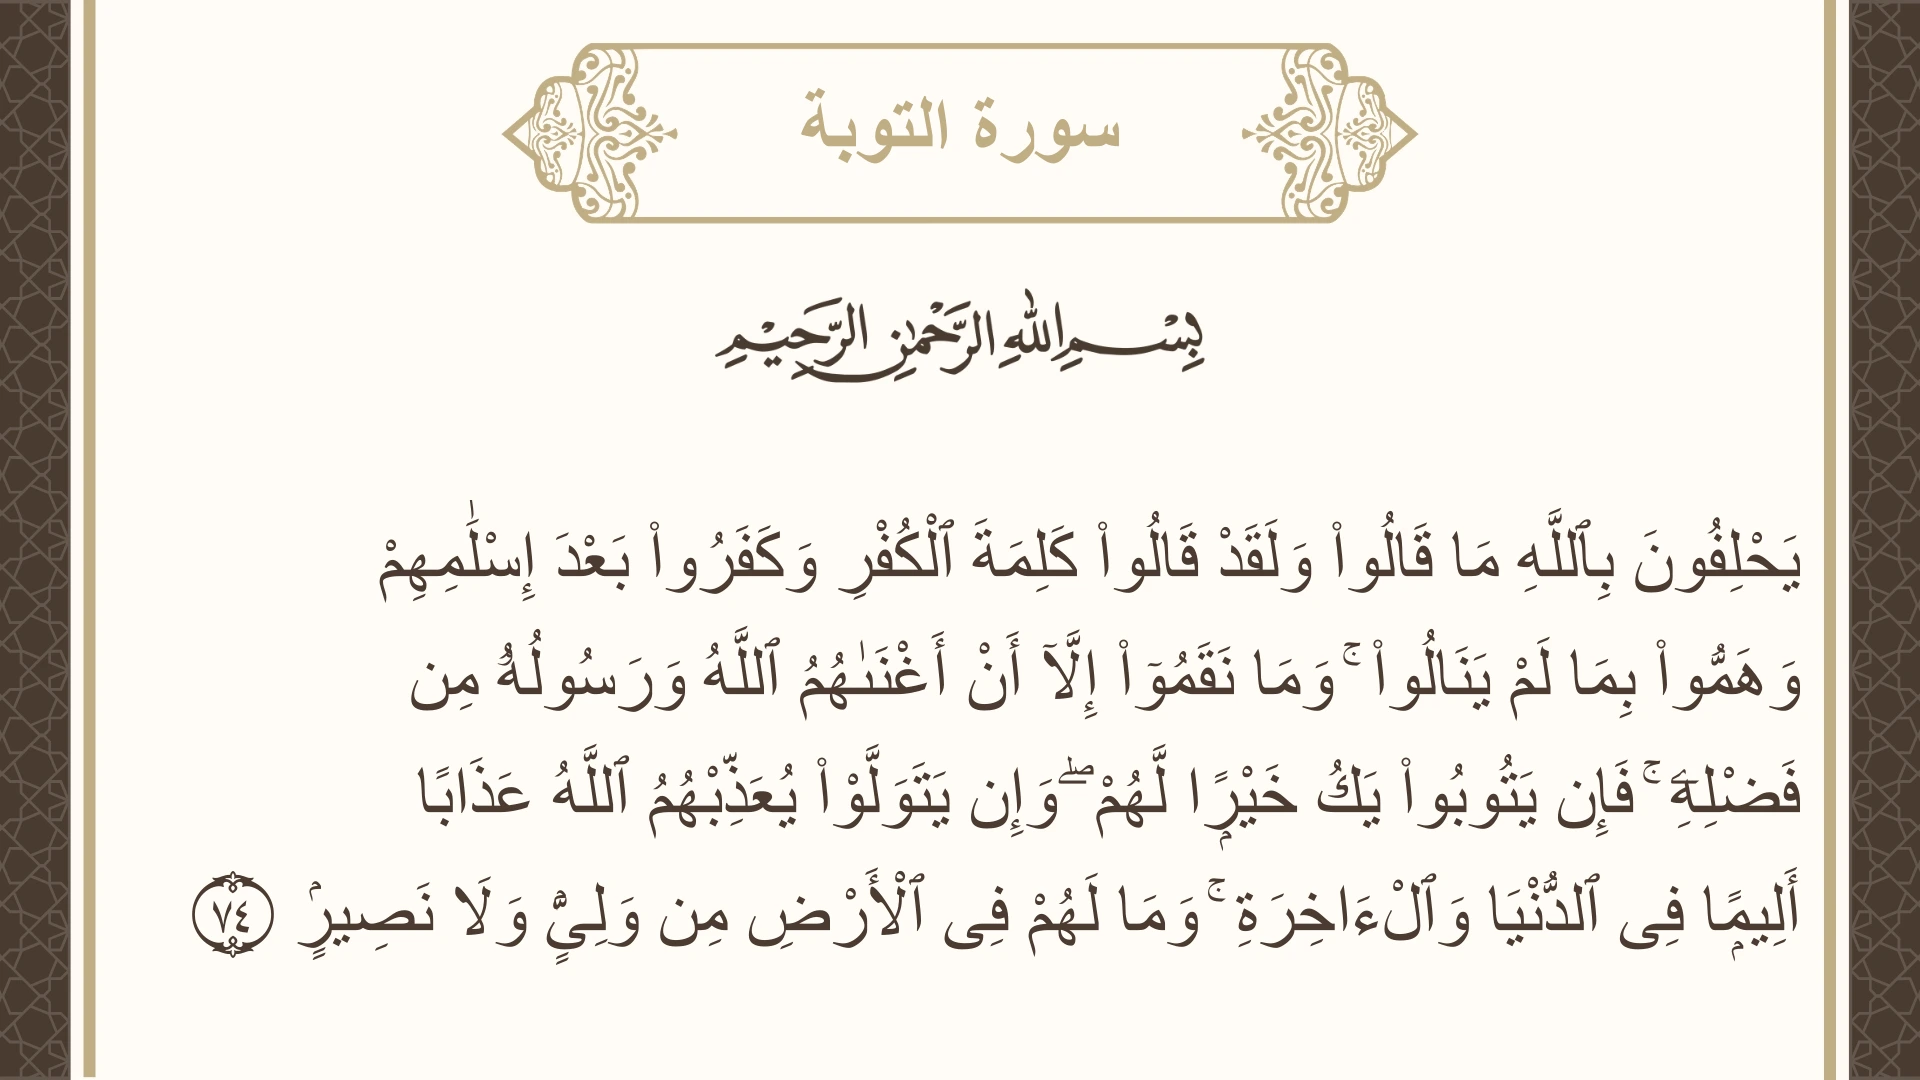 سورة التوبة
بِسْمِ اللهِ الرَّحْمٰنِ الرَّحِيْمِ
يَحْلِفُونَ بِٱللَّهِ مَا قَالُوا۟ وَلَقَدْ قَالُوا۟ كَلِمَةَ ٱلْكُفْرِ وَكَفَرُوا۟ بَعْدَ إِسْلَـٰمِهِمْ
وَهَمُّوا۟ بِمَا لَمْ يَنَالُوا۟ ۚ وَمَا نَقَمُوٓا۟ إِلَّآ أَنْ أَغْنَىٰهُمُ ٱللَّهُ وَرَسُولُهُۥ مِن
فَضْلِهِۦ ۚ فَإِن يَتُوبُوا۟ يَكُ خَيْرًۭا لَّهُمْ ۖ وَإِن يَتَوَلَّوْا۟ يُعَذِّبْهُمُ ٱللَّهُ عَذَابًا
أَلِيمًۭا فِى ٱلدُّنْيَا وَٱلْـَٔاخِرَةِ ۚ وَمَا لَهُمْ فِى ٱلْأَرْضِ مِن وَلِىٍّۢ وَلَا نَصِيرٍۢ ٧٤